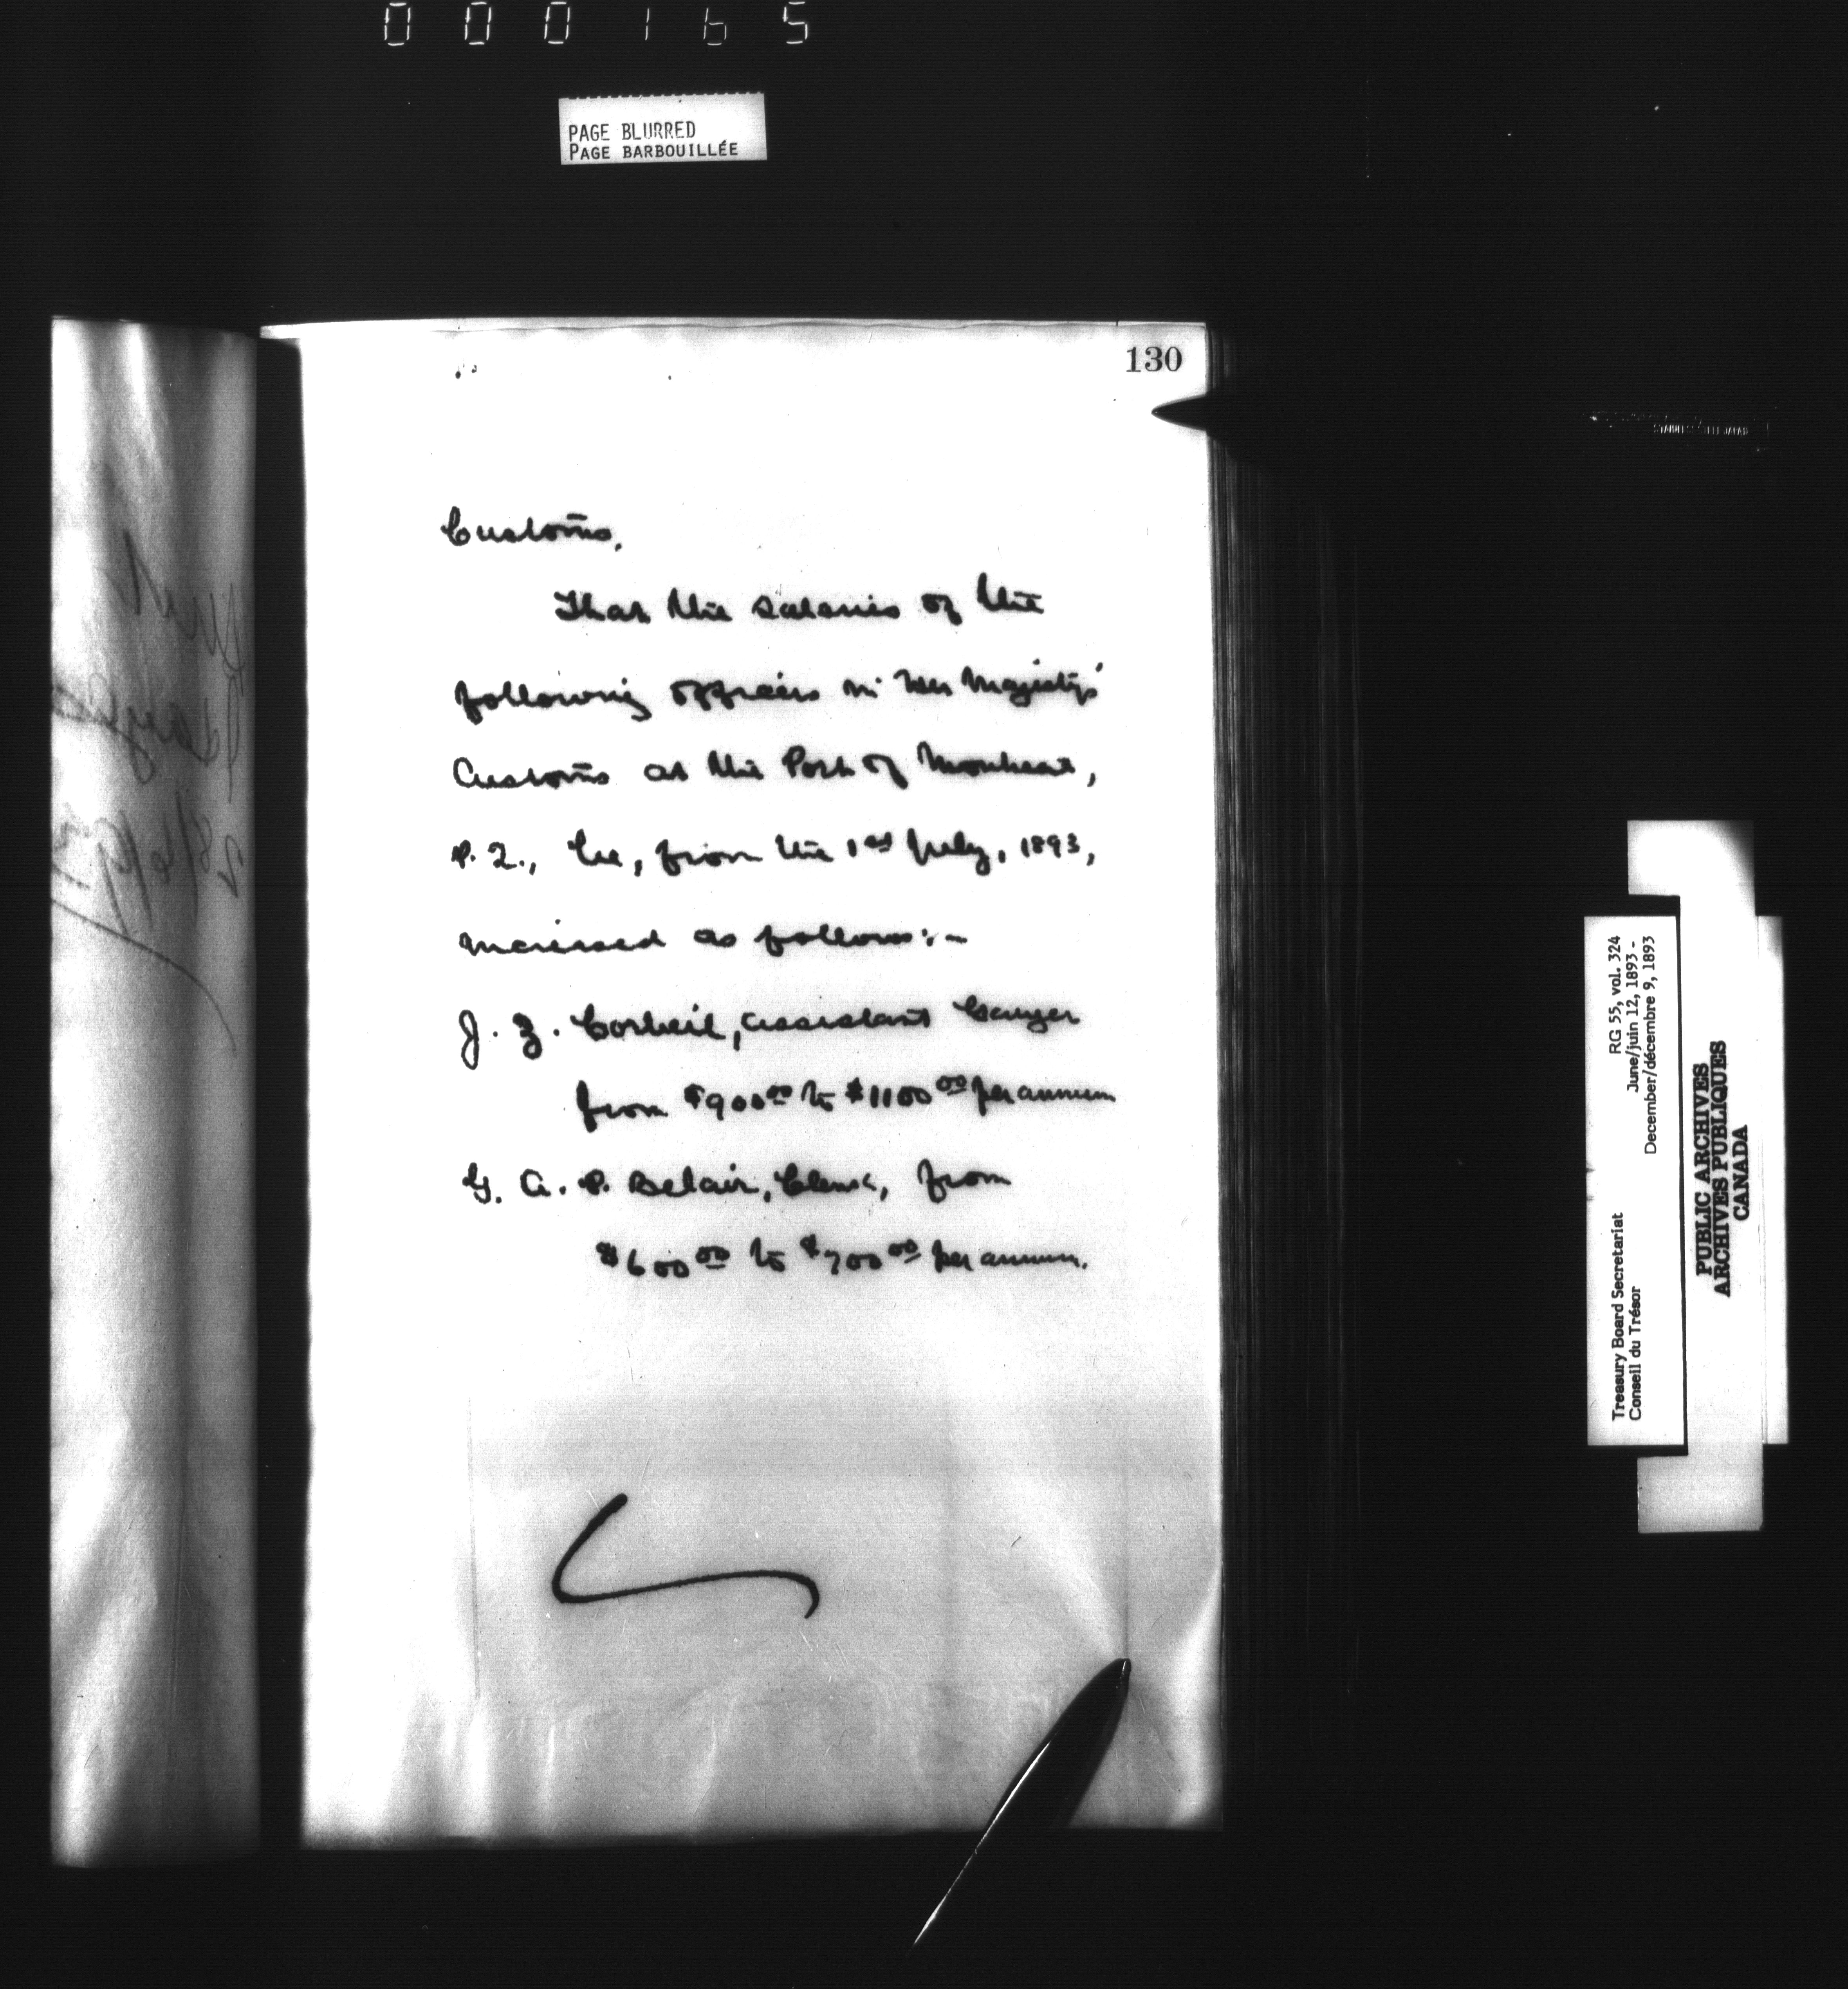 000165
PAGE BLURRED
PAGE BARBOUILLÉE
130
Customs,
That the salaries of the
following officers in Her Majesty's
Customs at the Port of Montreal,
P.Q., be, from the 1st July, 1893,
increased as follows:-
J. Z. Corbeil, assistant Gauger
from $900.00 to $1100.00 per annum
G. A. P. Belair, Clerk, from
$600.00 to $700.00 per annum.
28/6/93
STAINLESS STEEL JAPAN
Treasury Board Secretariat RG 55, vol. 324
Conseil du Trésor June/juin 12, 1893 -
December/décembre 9, 1893
PUBLIC ARCHIVES
ARCHIVES PUBLIQUES
CANADA